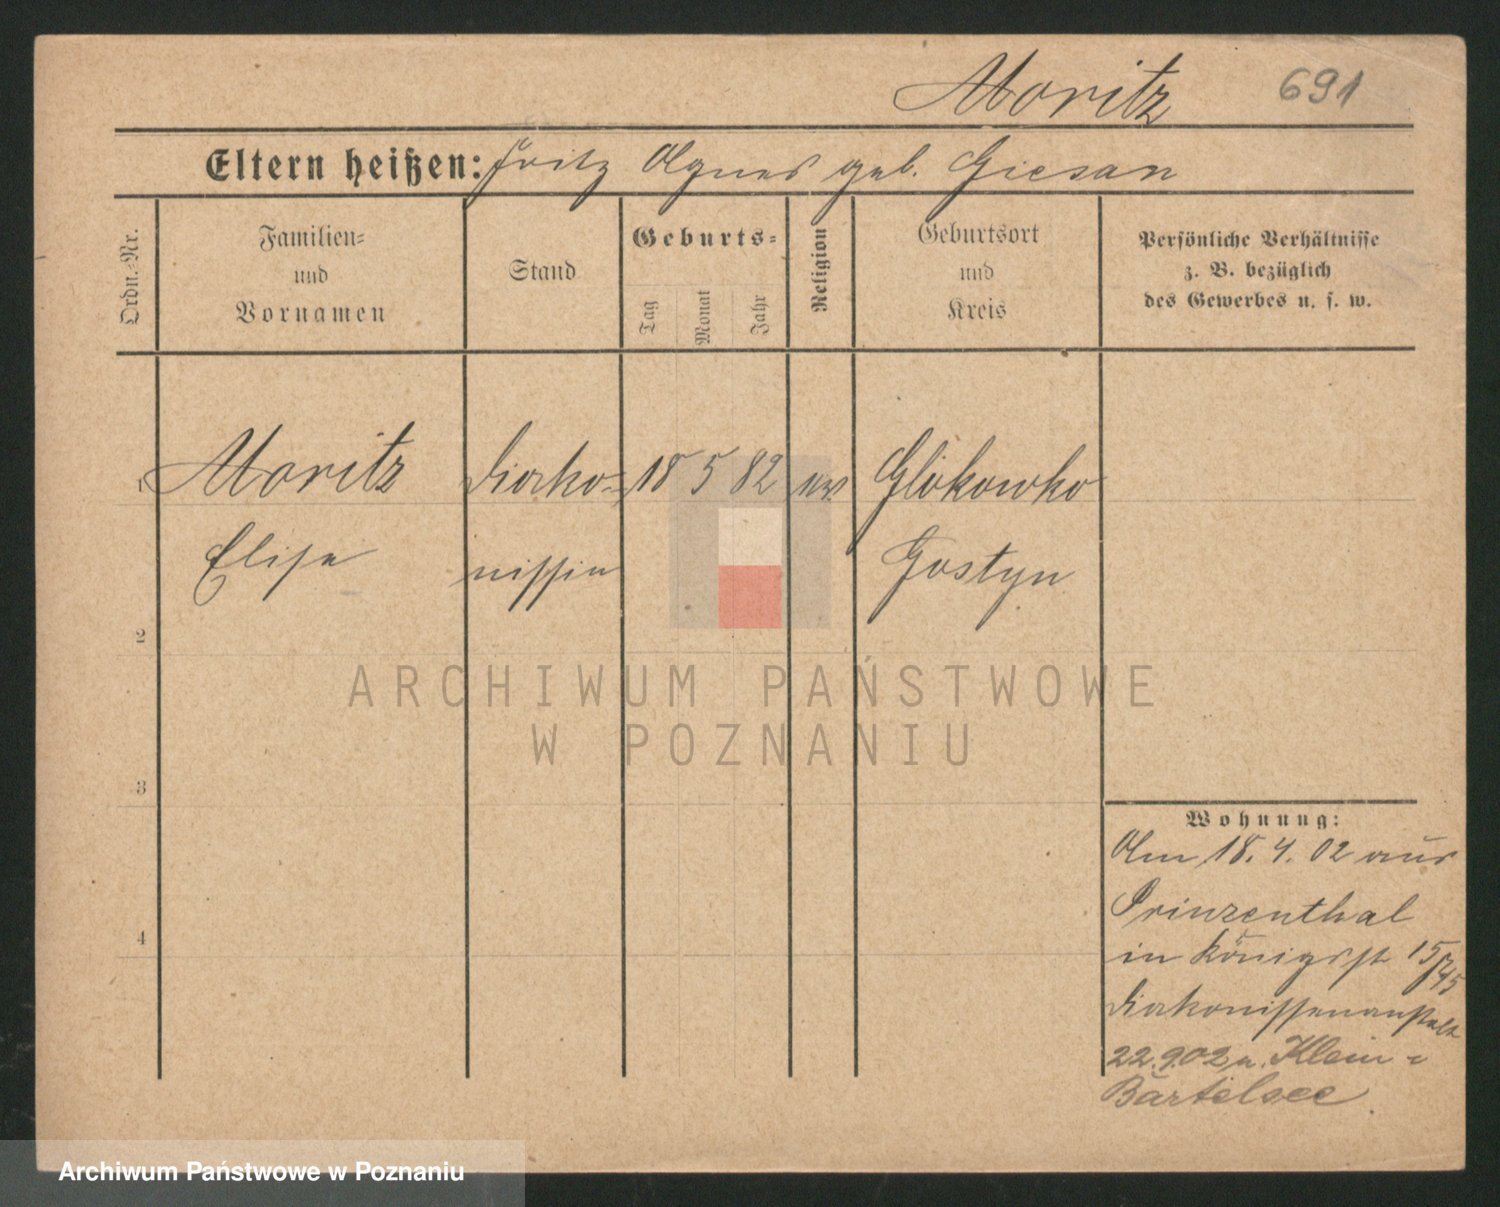 Moritz 691
Eltern heißen: Fritz Agnes geb. Giesan
Ordn.-Nr.
Familien-
und
Vornamen
Stand
Geburts-
Tag Monat Jahr
Religion
Geburtsort
und
Kreis
Persönliche Verhältnisse
z. B. bezüglich
des Gewerbes u. s. w.
1 Moritz Diako- 18 5 82 ev Glikowko
Elise nissin Gostyn
2
3
4
Wohnung:
Am 18. 4. 02 aus
Prinzenthal
in Königsst 15/45
Diakonissenanstalt
22.9.02 n. Klein-
Bartelsee
ARCHIWUM PAŃSTWOWE
W POZNANIU
Archiwum Państwowe w Poznaniu